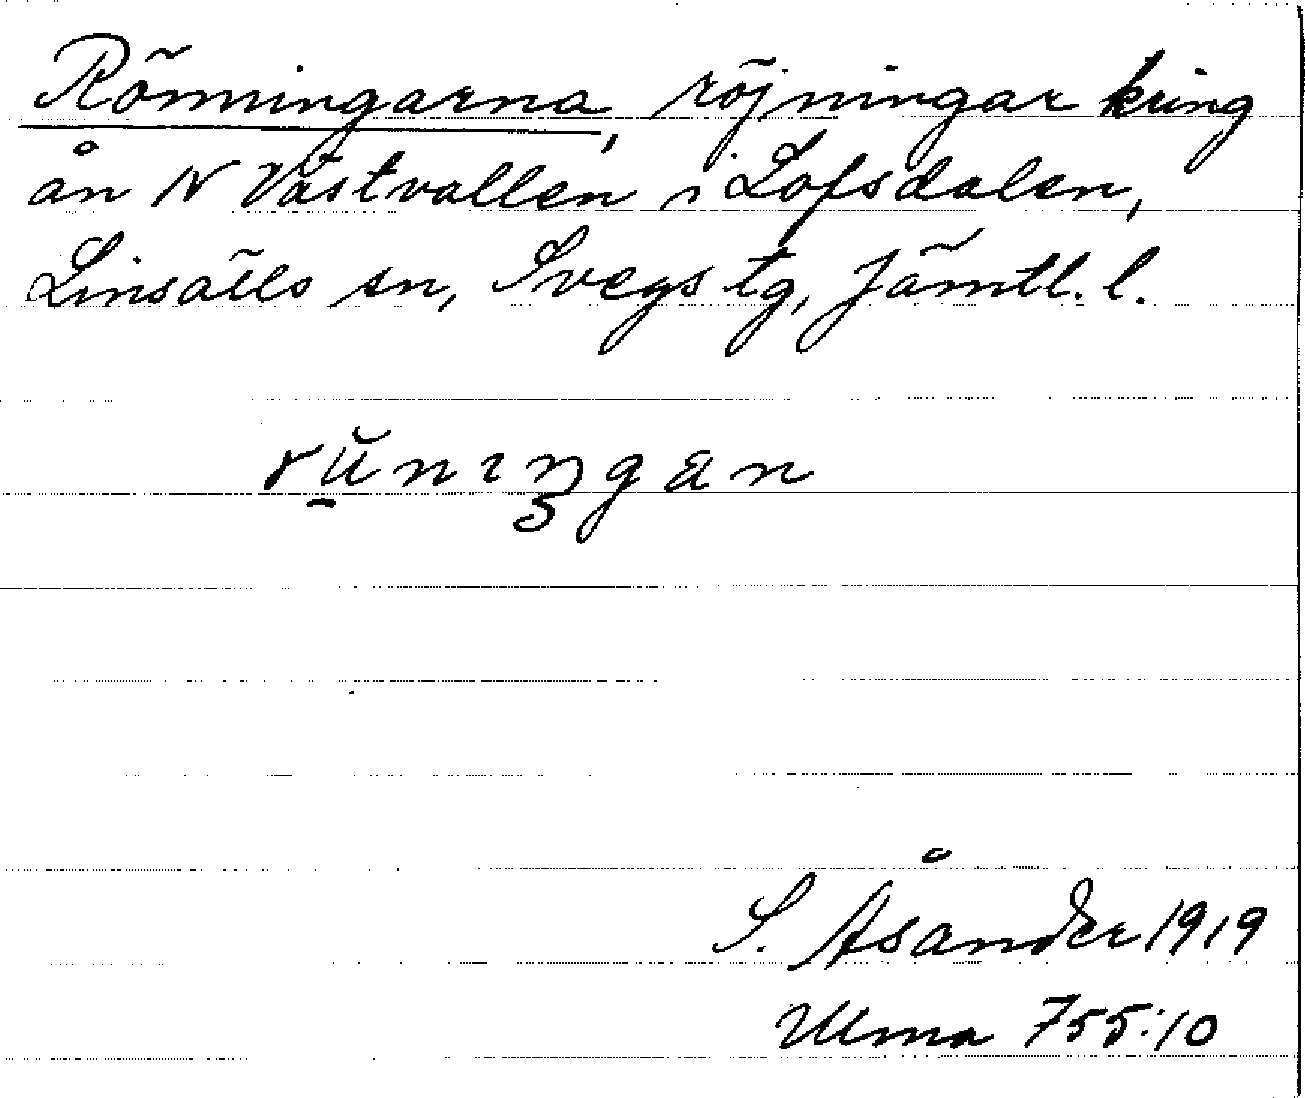 Rönningarna, röjningar kring
ån N Västvallen i Lofsdalen,
Linsälls sn, Svegs tg, Jämtl. l.
S. Åsander 1919
Ulma 755:10